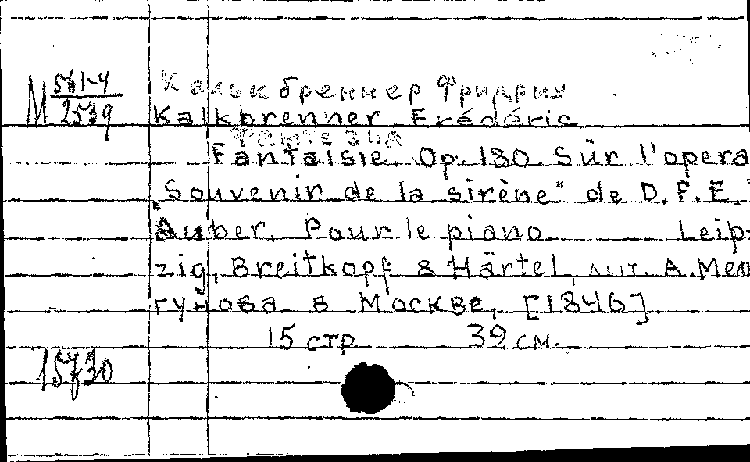 Калькбреннер Фридрих
M 581-4/2539 Kalkbrenner Frédéric
Фантазия
Fantaisie Op. 180. Sür l'opera
"Souvenir de la sirène" de D.F.E.
Auber. Pour le piano Leip-
zig, Breitkopf & Härtel, лит. А.
гунова в Москве, [1846]
15 стр 39 см.